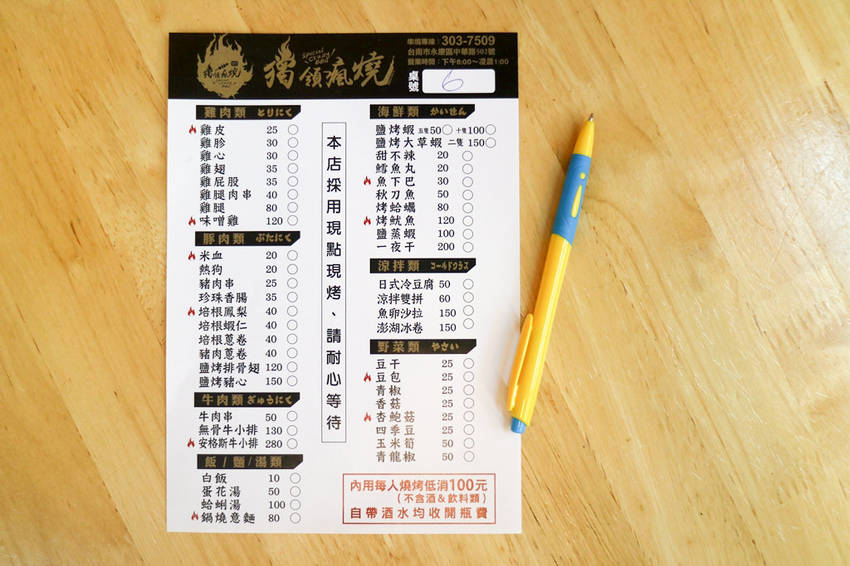 獨領瘋燒
special crazy bbq
串燒專線：303-7509
台南市永康區中華路502號
營業時間：下午6:00～凌晨1:00
獨領瘋燒
桌號 6
雞肉類 とりにく
雞皮 25
雞胗 30
雞心 30
雞翅 35
雞屁股 35
雞腿肉串 40
雞腿 80
味噌雞 120
豚肉類 ぶたにく
米血 20
熱狗 20
豬肉串 25
珍珠香腸 35
培根鳳梨 40
培根蝦仁 40
培根蔥卷 40
豬肉蔥卷 40
鹽烤排骨翅 120
鹽烤豬心 150
牛肉類 ぎゅうにく
牛肉串 50
無骨牛小排 130
安格斯牛小排 280
飯/麵/湯類
白飯 10
蛋花湯 50
蛤蜊湯 100
鍋燒意麵 80
本店採用現點現烤、請耐心等待
海鮮類 かいせん
鹽烤蝦 五隻50 十隻100
鹽烤大草蝦 二隻 150
甜不辣 20
鱈魚丸 20
魚下巴 30
秋刀魚 50
烤蛤蠣 80
烤魷魚 120
鹽蒸蝦 100
一夜干 200
涼拌類 コールドクラス
日式冷豆腐 50
涼拌雙拼 60
魚卵沙拉 150
澎湖冰卷 150
野菜類 やさい
豆干 25
豆包 25
青椒 25
香菇 25
杏鮑菇 25
四季豆 25
玉米筍 50
青龍椒 50
內用每人燒烤低消100元
(不含酒&飲料類)
自帶酒水均收開瓶費